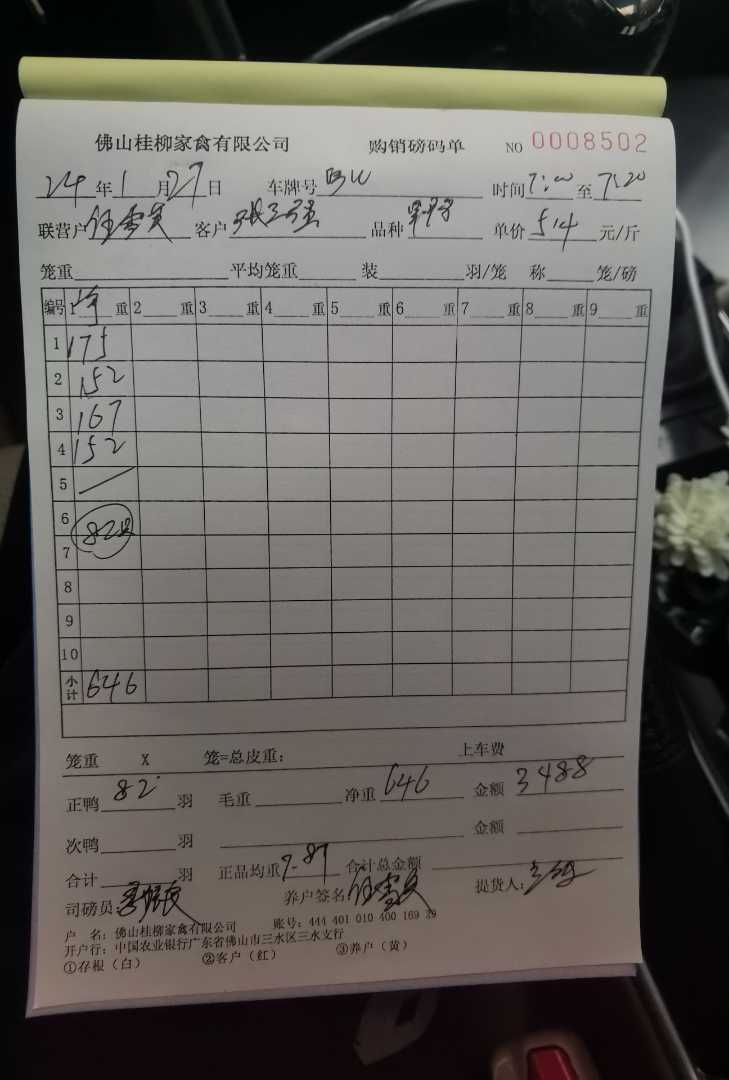 佛山桂柳家禽有限公司 购销磅码单 NO 0008502
24年1月27日 车牌号 时间7:00至7:20
联营户 客户 品种 单价5.4元/斤
笼重 平均笼重 装 羽/笼 称 笼/磅
编号 1 净 重 2 重 3 重 4 重 5 重 6 重 7 重 8 重 9 重
1 175
2 152
3 167
4 152
5
6 82只
7
8
9
10
小计 646
笼重 X 笼=总皮重: 上车费
正鸭 82 羽 毛重 净重 646 金额 3488
次鸭 羽 金额
合计 羽 正品均重 7.87 合计总金额
司磅员: 养户签名 提货人:
户 名: 佛山桂柳家禽有限公司 账号: 444 401 010 400 169 29
开户行: 中国农业银行广东省佛山市三水区三水支行
①存根（白） ②客户（红） ③养户（黄）